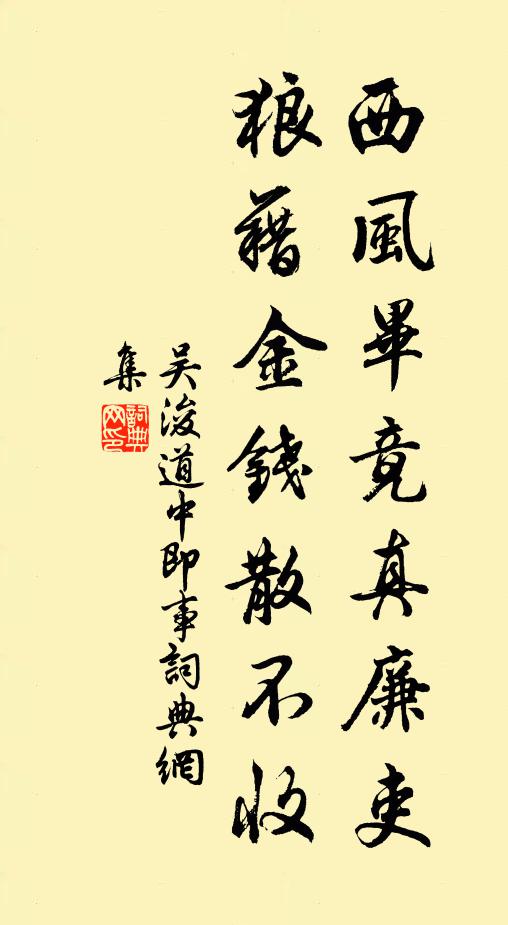 西風畢竟真廉吏
狼藉金錢散不收
吴浚道中即事詞典網
集
詞典網印